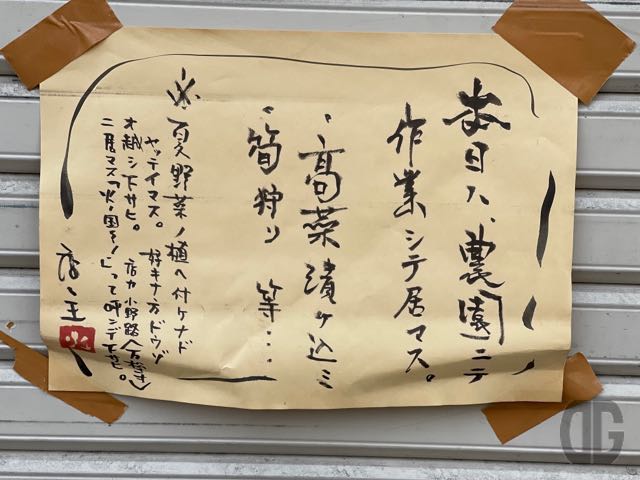 本日ハ、農園ニテ
作業シテ居マス。
・高菜漬ケ込ミ
・筍狩リ 等…
※夏野菜ノ植ヘ付ケナド
ヤッテイマス。好キナ方ドウゾ
オ越シ下サヒ。店カ小野路
ニ居マス「火の国そ!」って呼ンデ下サヒ。
店主
火
DG